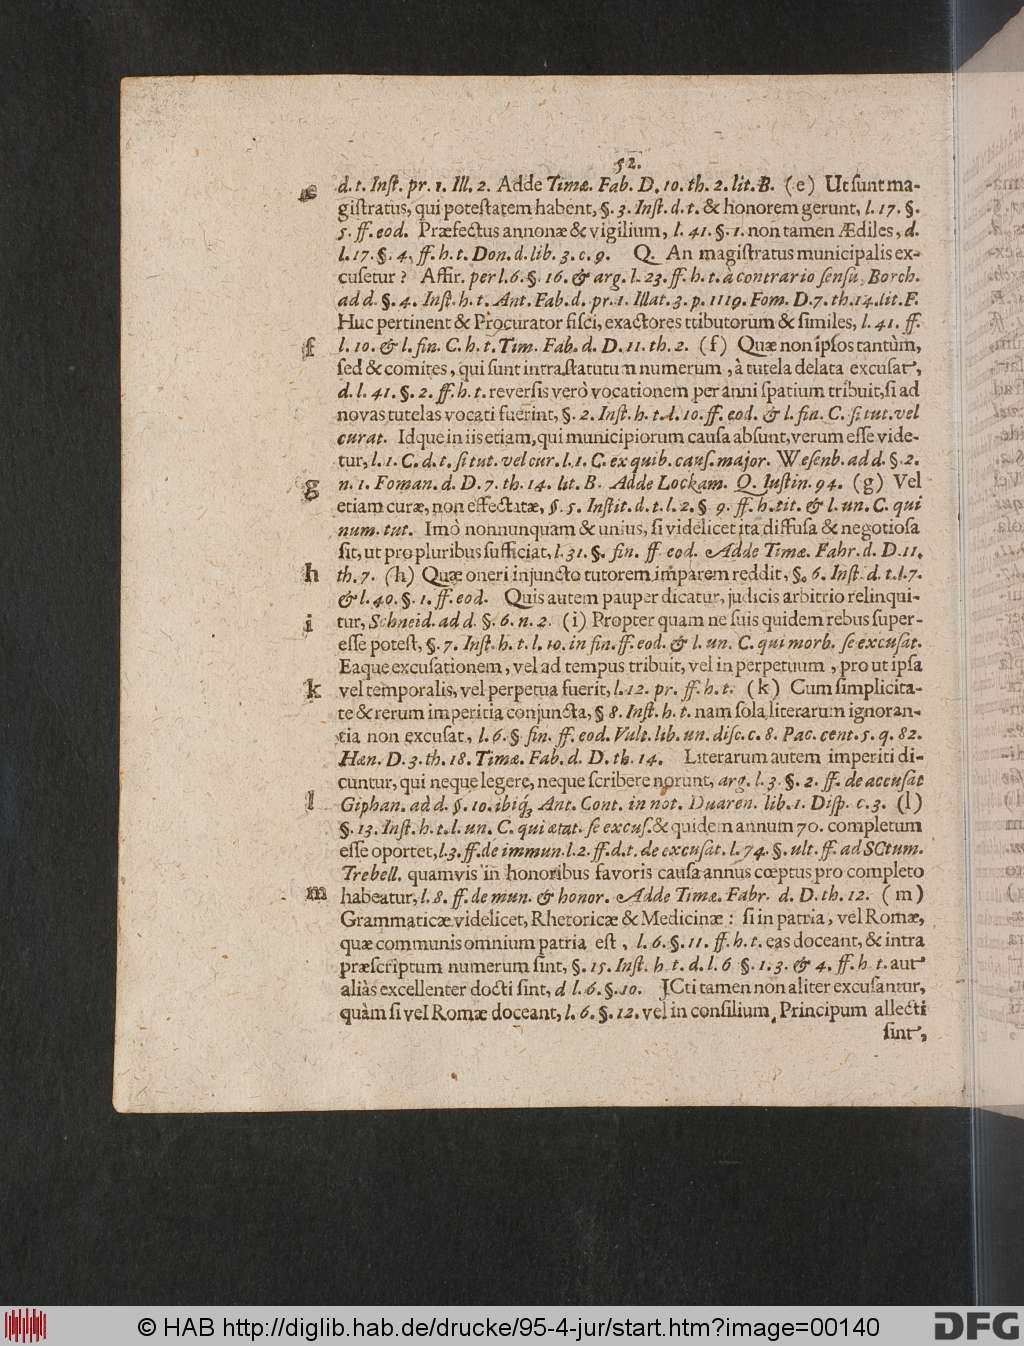 52.
e d. t. Inſt. pr. 1. Ill. 2. Adde Timæ. Fab. D. 10. th. 2. lit. B. (e) Ut ſunt ma-
giſtratus, qui poteſtatem habent, §. 3. Inſt. d. t. & honorem gerunt, l. 17. §.
5. ff. eod. Præfectus annonæ & vigilium, l. 41. §. 1. non tamen Ædiles, d.
l. 17. §. 4, ff. h. t. Don. d. lib. 3. c. 9. Q. An magiſtratus municipalis ex-
cuſetur? Affir. per l. 6. §. 16. & arg. l. 23. ff. h. t. à contrario ſenſu, Borch.
ad d. §. 4. Inſt. h. t. Ant. Fab. d. pr. 1. Illat. 3. p. 1119. Fom. D. 7. th. 14. lit. F.
Huc pertinent & Procurator fiſci, exactores ttibutorum & ſimiles, l. 41. ff.
f l. 10. & l. fin. C. h. t. Tim. Fab. d. D. 11. th. 2. (f) Quæ non ipſos tantùm,
ſed & comites, qui ſunt intra ſtatutum numerum, à tutela delata excuſat,
d. l. 41. §. 2. ff. h. t. reverſis verò vocationem per anni ſpatium tribuit, ſi ad
novas tutelas vocati fuerint, §. 2. Inſt. h. t. l. 10. ff. eod. & l. fin. C. ſi tut. vel
curat. Idque in iis etiam, qui municipiorum cauſa abſunt, verum eſſe vide-
tur, l. 1. C. d. t. ſi tut. vel cur. l. 1. C. ex quib. cauſ. major. Weſenb. ad d. §. 2.
g n. 1. Foman. d. D. 7. th. 14. lit. B. Adde Lockam. Q. Iuſtin. 94. (g) Vel
etiam curæ, non effectatæ, §. 5. Inſtit. d. t. l. 2. § 9. ff. h. tit. & l. un. C. qui
num. tut. Imò nonnunquam & unius, ſi videlicet ita diffuſa & negotioſa
ſit, ut pro pluribus ſufficiat, l. 31. §. fin. ff. eod. Adde Timæ. Fahr. d. D. 11.
h th. 7. (h) Quæ oneri injuncto tutorem imparem reddit, §. 6. Inſt. d. t. l. 7.
& l. 40. §. 1. ff. eod. Quis autem pauper dicatur, judicis arbitrio relinqui-
i tur, Schneid. ad d. §. 6. n. 2. (i) Propter quam ne ſuis quidem rebus ſuper-
eſſe poteſt, §. 7. Inſt. h. t. l. 10. in fin. ff. eod. & l. un. C. qui morb. ſe excuſat.
Eaque excuſationem, vel ad tempus tribuit, vel in perpetuum, pro ut ipſa
k vel temporalis, vel perpetua fuerit, l. 12. pr. ff. h. t. (k) Cum ſimplicita-
te & rerum imperitia conjuncta, § 8. Inſt. h. t. nam ſola literarum ignoran-
tia non excuſat, l. 6. § fin. ff. eod. Vult. lib. un. diſc. c. 8. Pac. cent. 5. q. 82.
Hæn. D. 3. th. 18. Timæ. Fab. d. D. th. 14. Literarum autem imperiti di-
cuntur, qui neque legere, neque ſcribere norunt, arg. l. 3. §. 2. ff. de accuſat
l Giphan. ad d. §. 10. ibiq́; Ant. Cont. in not. Duaren. lib. 1. Diſp. c. 3. (l)
§. 13. Inſt. h. t. l. un. C. qui ætat. ſe excuſ. & quidem annum 70. completum
eſſe oportet, l. 3. ff. de immun. l. 2. ff. d. t. de excuſat. l. 74. §. ult. ff. ad SCtum.
Trebell. quamvis in honoribus favoris cauſa annus cœptus pro completo
m habeatur, l. 8. ff. de mun. & honor. Adde Timæ. Fabr. d. D. th. 12. (m)
Grammaticæ videlicet, Rhetoricæ & Medicinæ: ſi in patria, vel Romæ,
quæ communis omnium patria eſt, l. 6. §. 11. ff. h. t. eas doceant, & intra
præſcriptum numerum ſint, §. 15. Inſt. h t. d. l. 6 §. 1. 3. & 4. ff. h t. aut
aliàs excellenter docti ſint, d l. 6. §. 10. JCti tamen non aliter excuſantur,
quàm ſi vel Romæ doceant, l. 6. §. 12. vel in conſilium Principum allecti
ſint,
© HAB http://diglib.hab.de/drucke/95-4-jur/start.htm?image=00140
DFG